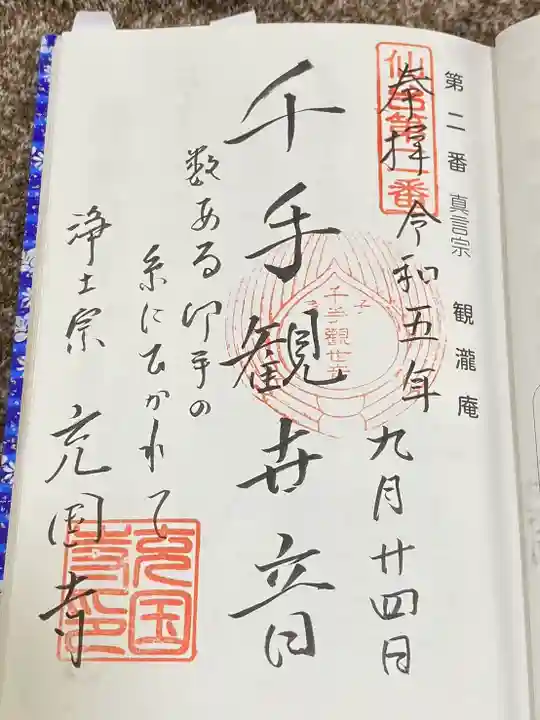 第二番 真言宗 観瀧庵
奉拝 令和五年 九月廿四日
千手観世音
数ある御手の
糸にひかれて
浄土宗 充国寺
千手観世音
充国寺印